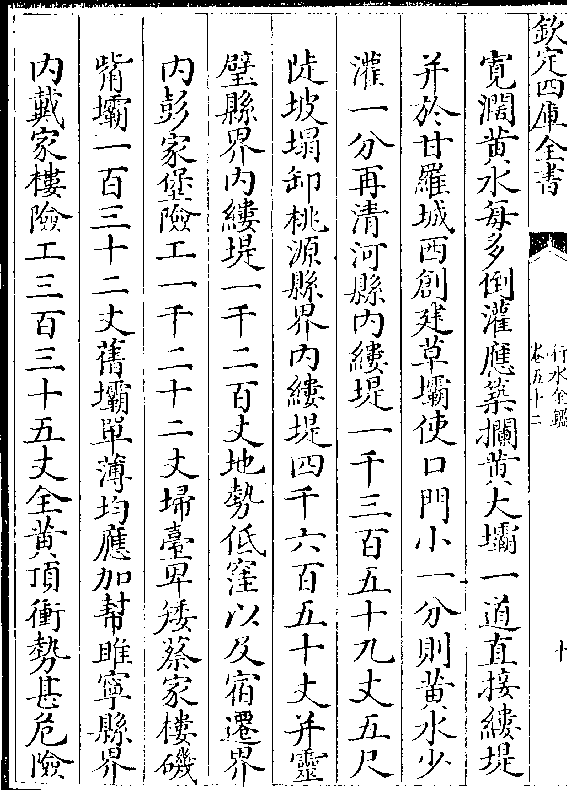 欽定四庫全書
行水金鑑
卷五十二
十
寛濶黄水毎多倒灌應築攔黄大壩一道直接縷堤
并於甘羅城西創建草壩使口門小一分則黄水少
灌一分再清河縣内縷堤一千三百五十九丈五尺
陡坡塌卸桃源縣界内縷堤四千六百五十丈并靈
璧縣界内縷堤一千二百丈地勢低窪以及宿遷界
内彭家堡險工一千二十二丈埽臺卑矮蔡家樓磯
觜壩一百三十二丈舊壩單薄均應加幫睢寧縣界
内戴家樓險工三百三十五丈全黄頂衝勢甚危險